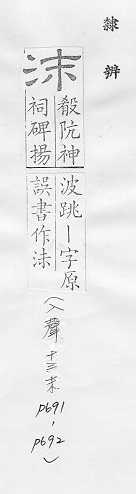 隸辨
沫
殽阬神
祠碑揚
波跳｜字原
誤書作沫
（入聲十三末
p691，
p692）